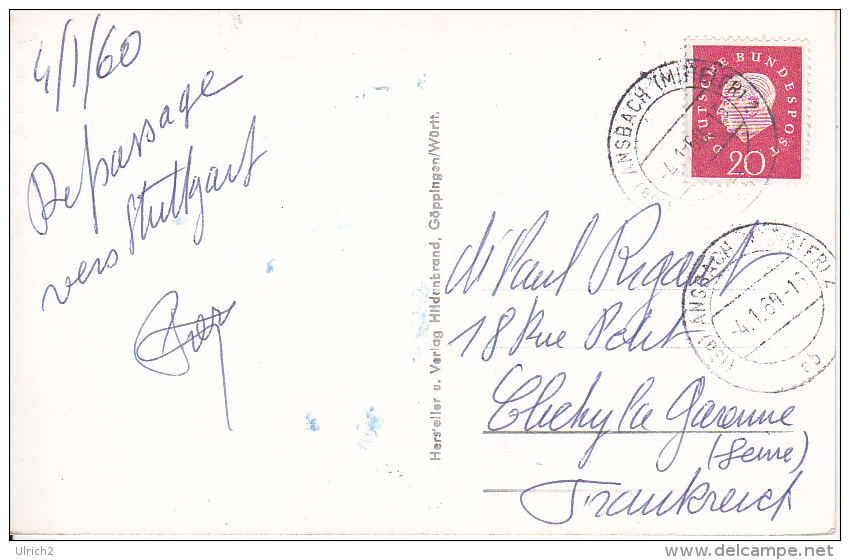 4/1/60
Repassage
vers Stuttgart
Hersteller u. Verlag Hildenbrand, Göppingen/Württ.
DEUTSCHE BUNDESPOST
20
ANSBACH (MITTELFR) 2
-4.1.60
(13a) ANSBACH (MITTELFR) 2
-4.1.60-1
Mr Paul Rigault
18 Rue
Clichy la Garenne
(Seine)
Frankreich
Ulrich2
delcampe.net